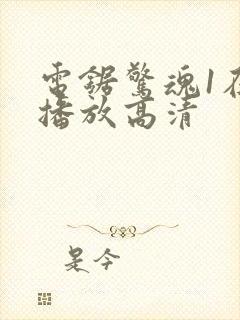 電鋸驚魂1在
播放高清
是今